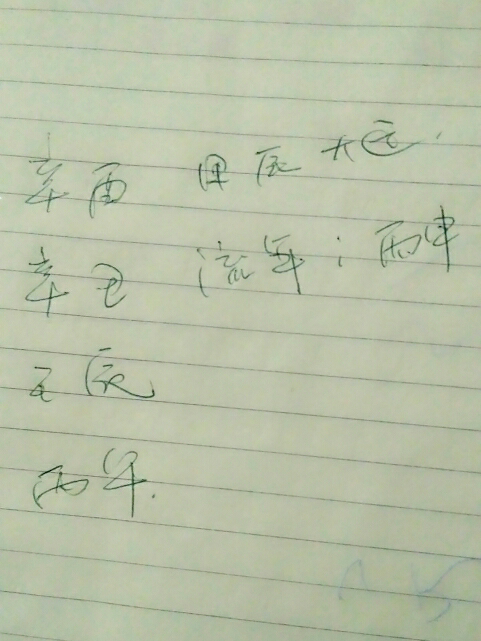 辛酉 甲辰大运.
辛丑 流年:丙申
壬辰
丙午.